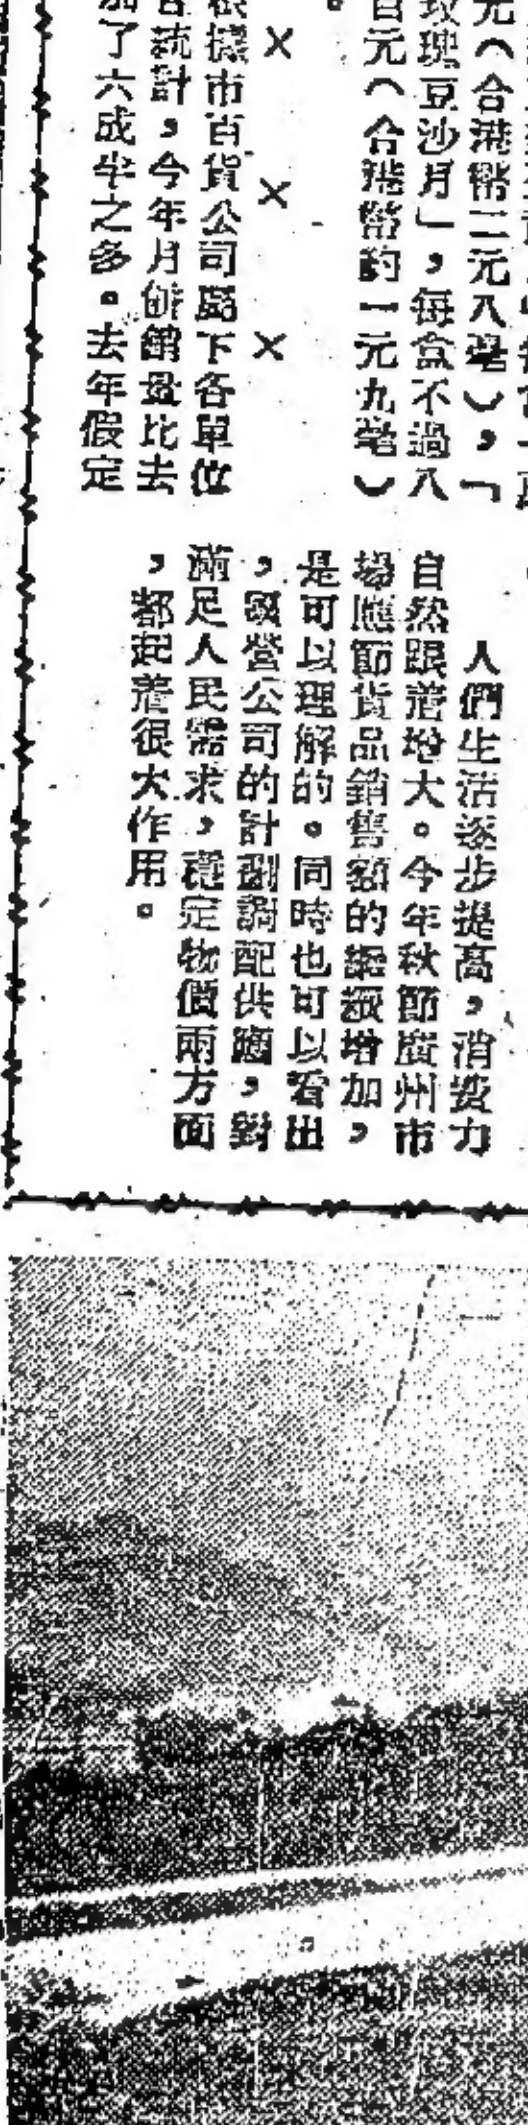 元（合港幣二元八毫），「
玫瑰豆沙月」，每盒不過八
百元（合港幣約一元九毫）
。
×　×　×
根據市百貨公司屬下各單位
統計，今年月餅銷量比去
加了六成半之多。去年假定
人們生活逐步提高，消費力
自然跟着增大。今年秋節廣州市
場應節貨品銷售額的繼續增加，
是可以理解的。同時也可以看出
，國營公司的計劃調配供應，對
滿足人民需求，穩定物價兩方面
，都起着很大作用。